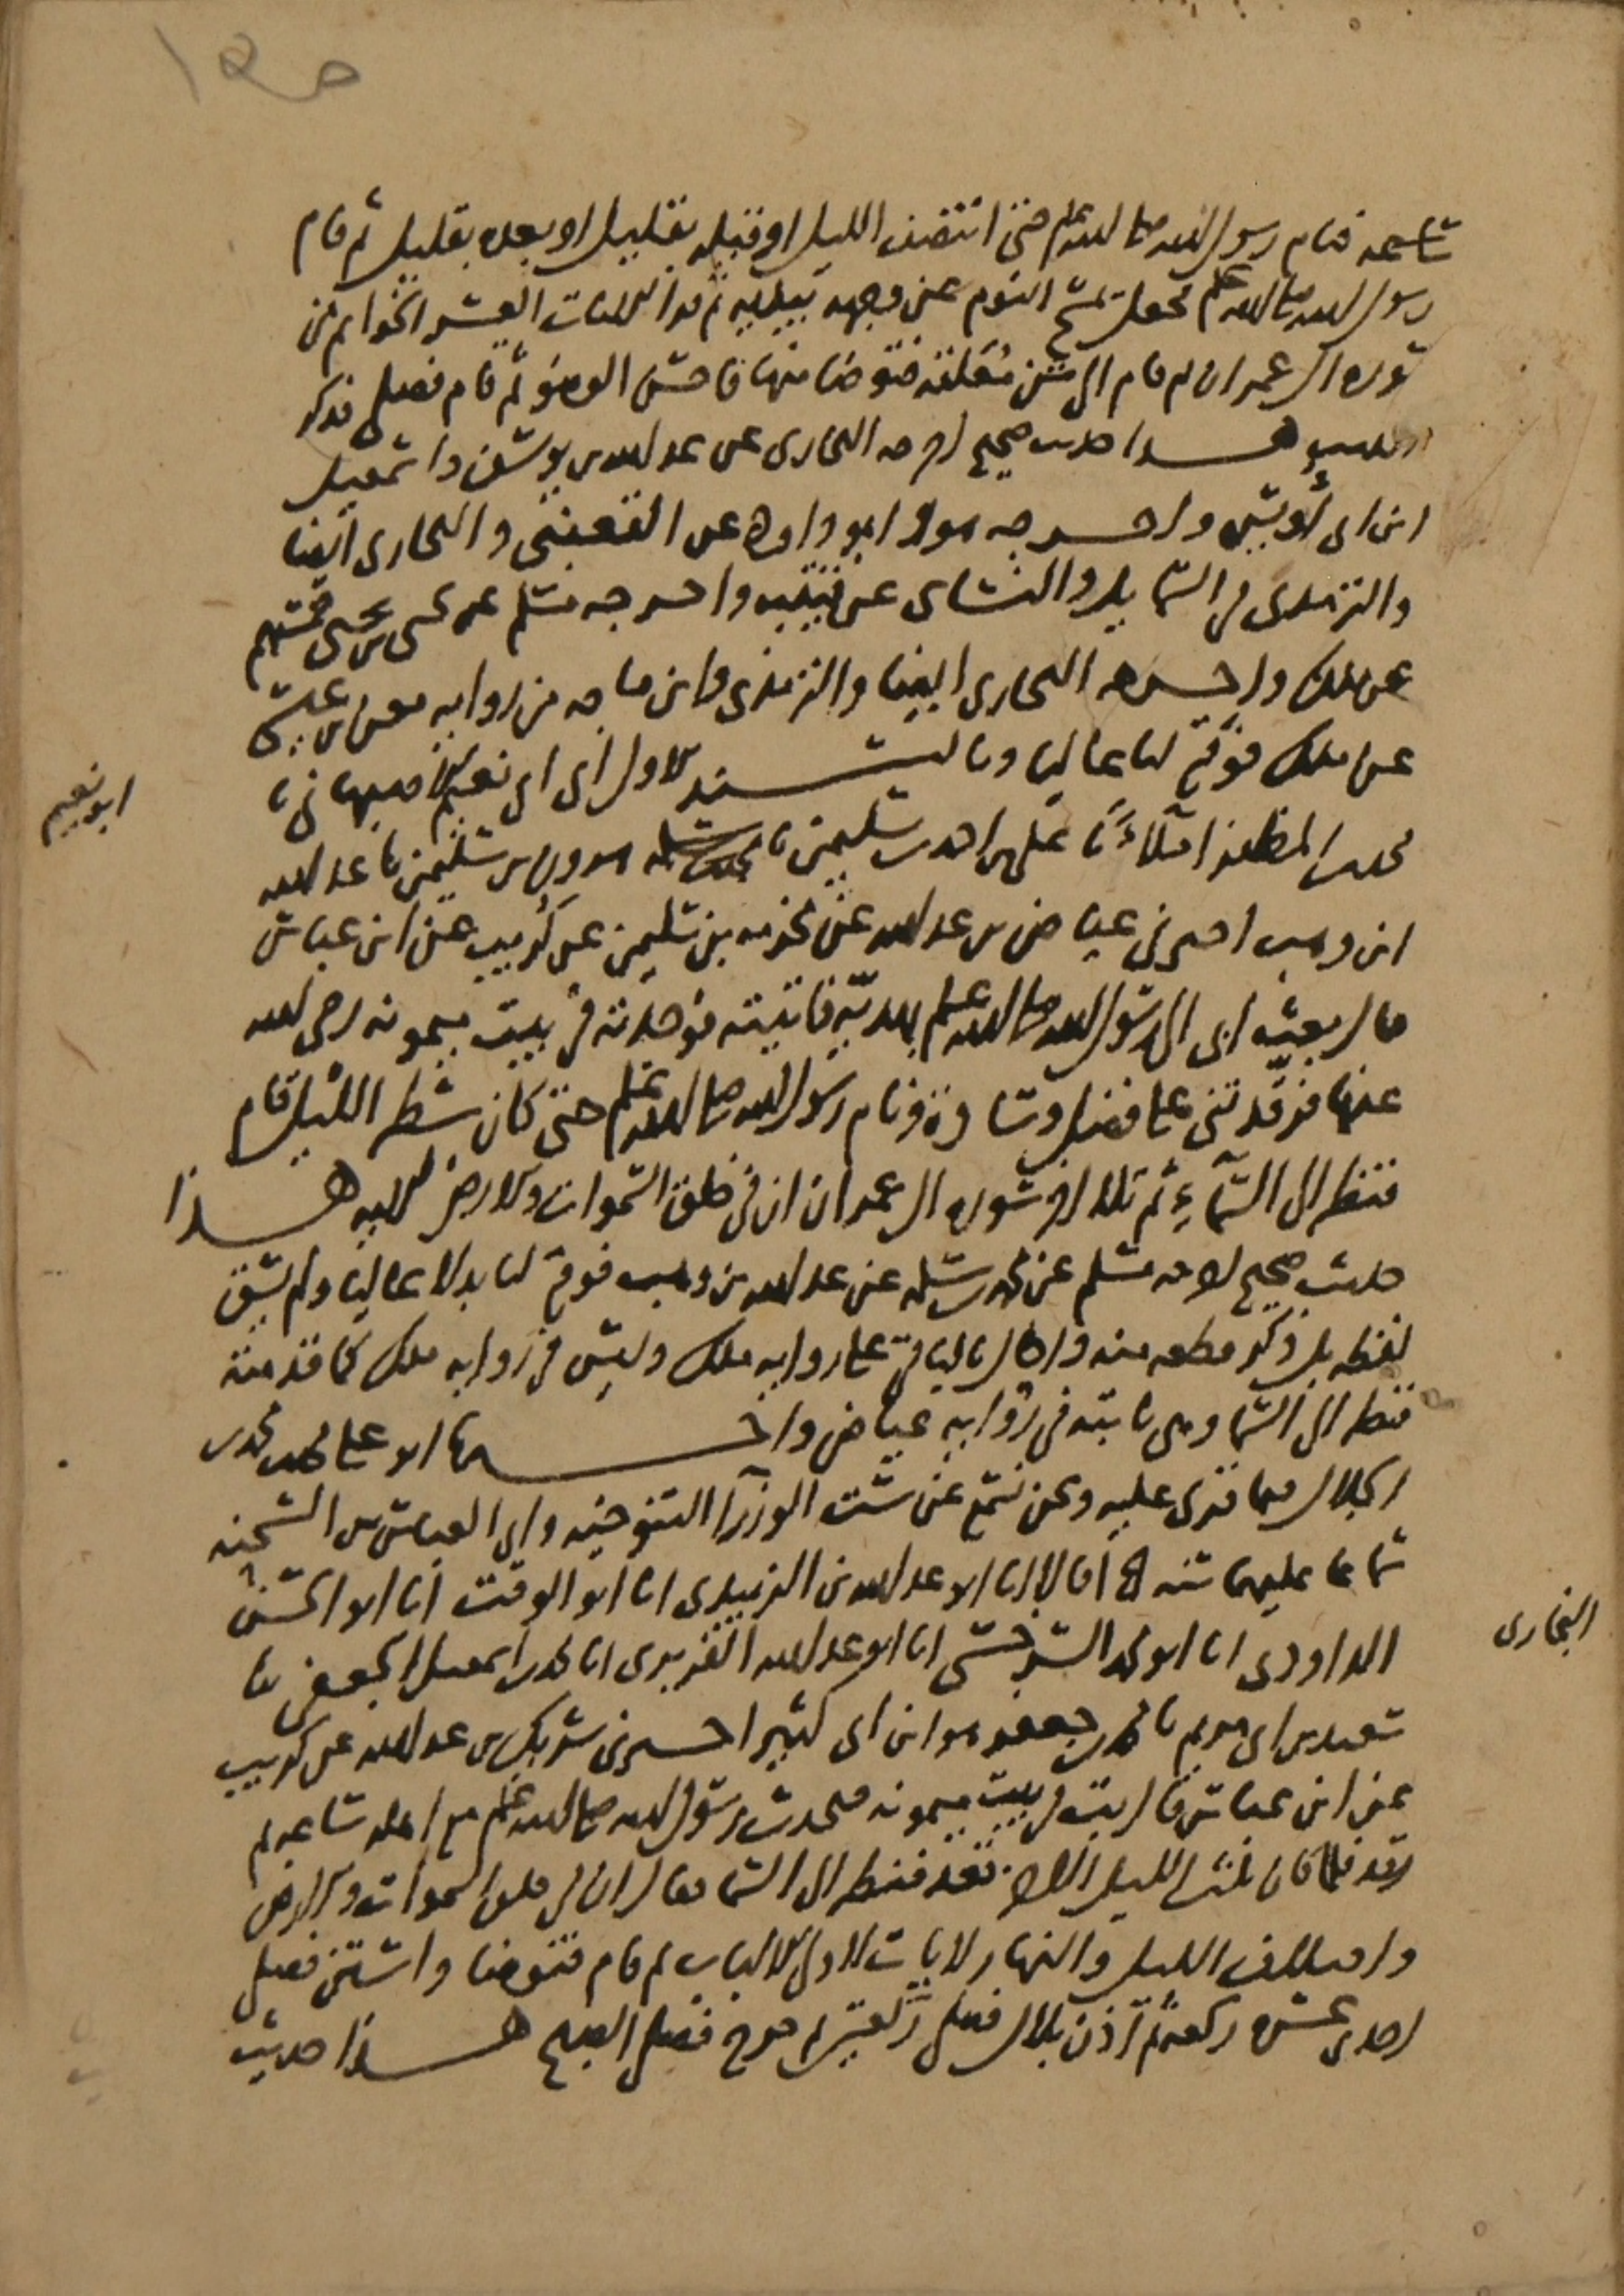 ساعة فنام رسول الله صلى الله عليه وسلم حتى انتصف الليل او قبله بقليل او بعده بقليل ثم قام
رسول الله صلى الله عليه وسلم فجعل يمسح النوم عن وجهه بيديه ثم قرأ الآيات العشر الخواتم من
سورة ال عمران ثم قام الى شن معلقة فتوضا منها فاحسن الوضوء ثم قام فصلى فذكر
الحديث هذا حديث صحيح اخرجه البخاري عن عبد الله بن يوسف واسمعيل
ابن ابي أويس واخرجه هو وابو داود عن القعنبي والبخاري ايضا
والترمذي في الشمايل والنسائي عن قتيبة واخرجه مسلم عن يحيى بن يحيى خمستهم
عن ملك واخرجه البخاري ايضا والترمذي وابن ماجه من رواية معن بن عيسى
عن ملك فوقع لنا عاليا وبالسند الاول الى ابي نعيم الاصبهاني نا
محمد بن المظفر املاءً نا علي بن احمد بن سليمن نا محمد بن سلمه هرون بن سليمن نا عبد الله
ابن وهب اخبرني عياض بن عبد الله عن مخرمه بن سليمن عن كريب عن ابن عباس
قال بعثني ابي الى رسول الله صلى الله عليه وسلم بهدية فاتيته فوجدته في بيت ميمونه رضي الله
عنها فرقدتني على فضل وسادة ونام رسول الله صلى الله عليه وسلم حتى كان شطر الليل قام
فنظر الى السماء ثم تلا اخر سورة ال عمران ان في خلق السموات والارض الايه هذا
حديث صحيح اخرجه مسلم عن محمد بن سلمه عن عبد الله بن وهب فوقع لنا بدلا عاليا ولم يسق
لفظه بل ذكر قطعه منه واحال بالباقي على رواية ملك وليس في رواية ملك كما قدمته
فنظر الى السماء وهي ثابته في رواية عياض واخبرنا ابو علي محمد بن محمد بن
الجلال فيما قرئ عليه ونحن نسمع عن ست الوزرآ التنوخيه وابي العباس بن الشحنه
سماعا عليهما قالا انا ابو عبد الله بن الزبيدي انا ابو الوقت انا ابو الحسن
الداودي انا ابو محمد السرخسي انا ابو عبد الله الفربري انا محمد بن اسمعيل الجعفي نا
سعيد بن ابي مريم نا محمد بن جعفر هو ابن ابي كثير اخبرني شريك بن عبد الله عن كريب
عن ابن عباس قال بت في بيت ميمونه فتحدث رسول الله صلى الله عليه وسلم مع اهله ساعه ثم
رقد فلما كان ثلث الليل الاخر قعد فنظر الى السماء فقال ان في خلق السموات والارض
واختلاف الليل والنهار لايات لاولي الالباب ثم قام فتوضا واستن فصلى
احدى عشرة ركعة ثم أذن بلال فصلى ركعتين ثم خرج فصلى الصبح هذا حديث
ابو نعيم
البخاري